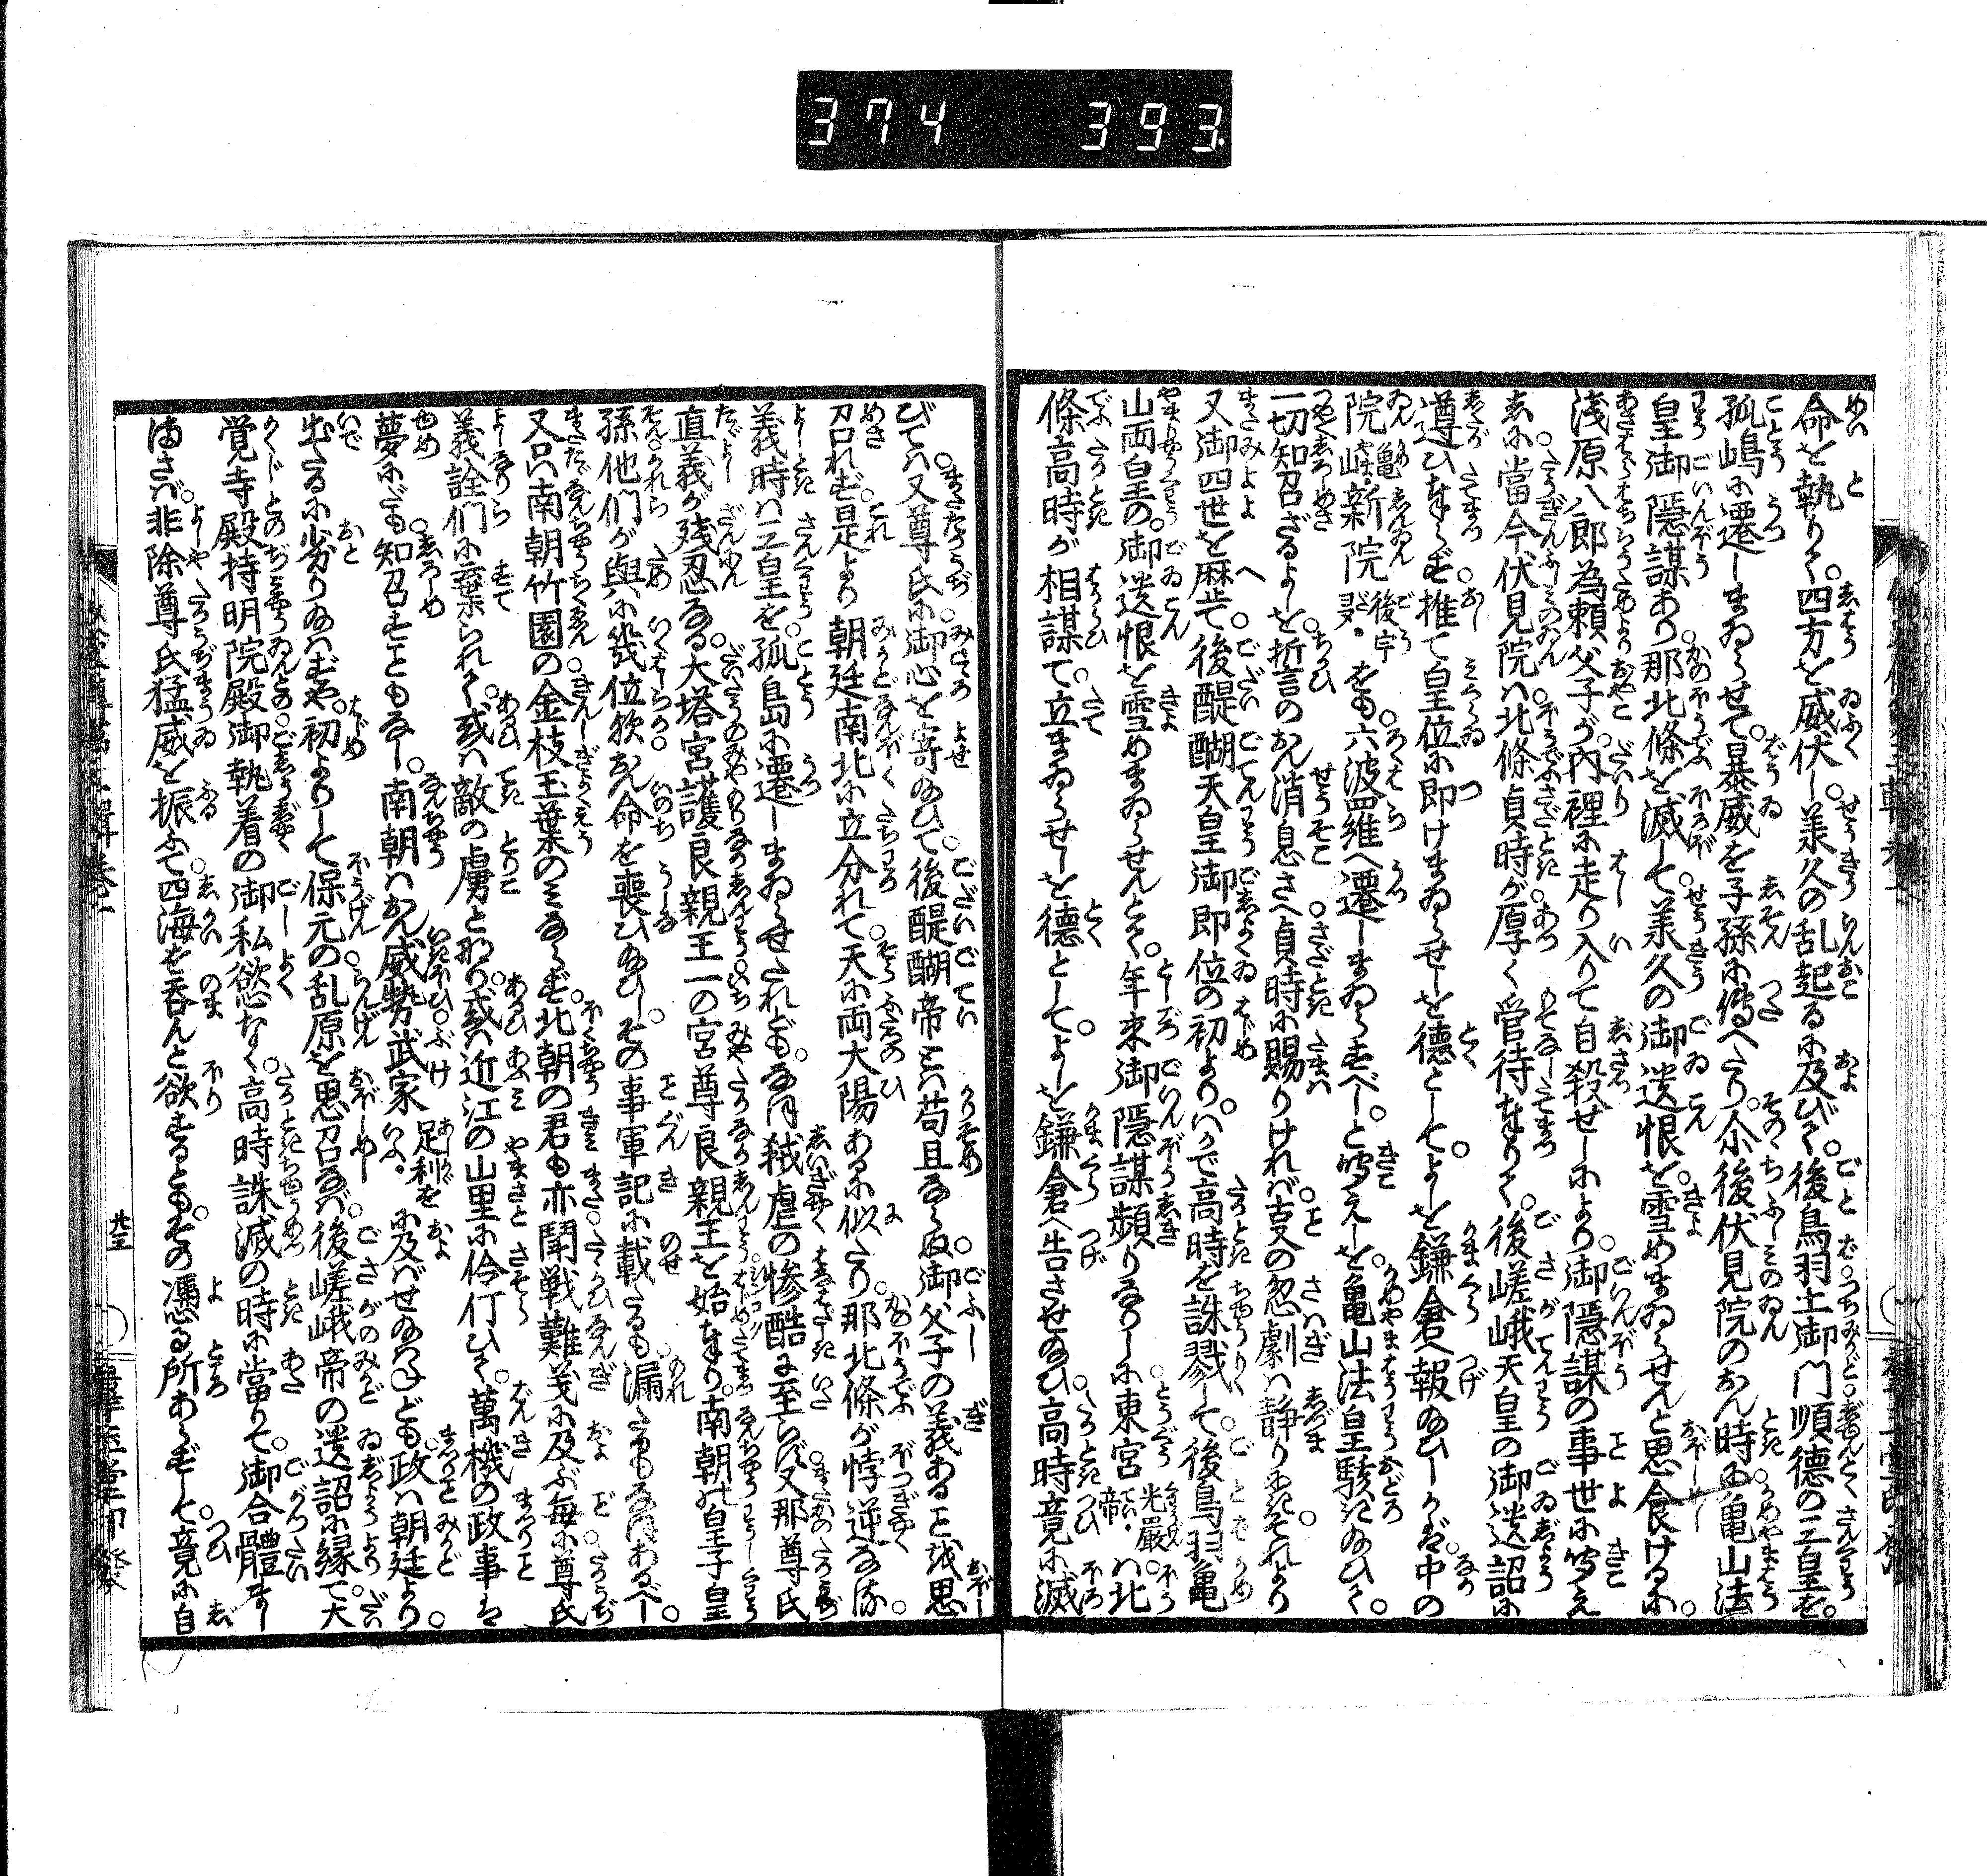 374 393
命を執りて。四方を威伏し。承久の乱起るに及びて。後鳥羽土御門順徳の三皇を。
孤嶋に遷しまゐらせて。暴威を子孫に傳へたり。尒後伏見院のおん時に。亀山法
皇御隠謀あり。那北條を滅して。承久の御遺恨を。雪めまゐらせんと思食けるに。
浅原八郎為頼父子が。内裡に走り入りて自殺せしにより。御隠謀の事世に聞え
しに。當今伏見院は。北條貞時が厚く管待奉りて。後嵯峨天皇の御遺詔に
遵ひ奉らず。推て皇位に即けまゐらせしを徳として。よしを鎌倉へ報給ひしかば。中の
院亀山・新院後宇多・をも。六波羅へ遷しまゐらすべし。と聞えしを。亀山法皇駭き給ひて。
一切知召ざるよしを。誓言のおん消息さへ。貞時に賜りければ。事の忩劇は静りにき。それより
又御四世を歴て。後醍醐天皇御即位の初より。いかで高時を誅戮して。後鳥羽亀
山両皇の。御遺恨を雪めまゐらせんとて。年来御隠謀頻りなりしに。東宮光厳帝・は。北
條高時が相謀て。立まゐらせしを徳として。よしを鎌倉へ告させ給ひ。高時竟に滅
びては。又尊氏に御心を寄給ひて。後醍醐帝とは苟且ならぬ。御父子の義あるを思
召れず。是より朝廷南北に立分れて。天に両大陽あるに似たり。那北條が悖逆なる。
義時は三皇を。孤島に遷しまゐらせたれども。なほ弑虐の惨酷に至らず。又那尊氏
直義が残忍なる。大塔宮護良親王一の宮尊良親王を始奉り。南朝の皇子皇
孫。他們が與に幾位欤。おん命を喪ひ給ひし。その事軍記に載たるも。漏たるもなほあるべし。
又只南朝竹園の。金枝玉葉のみならず。北朝の君も亦。闘戦難義に及ぶ毎に。尊氏
義詮們に棄られて。或は敵の虜となり。或は近江の山里に伶仃ひて。萬機の政事は
夢にだも知召すこともなし。南朝はおん威勢。武家足利をいふ・に及ばせ給はねども。政は朝廷より。
出たるに劣り給はずや。初よりして保元の乱原を思召なば。後嵯峨帝の遺詔に縁て。大
覚寺殿持明院殿。御執着の御私慾なく。高時誅滅の時に當りて。御合體まし
まさば。非除尊氏猛威を振ふて。四海を呑んと欲するとも。その憑る所あらずして。竟に自
廿五